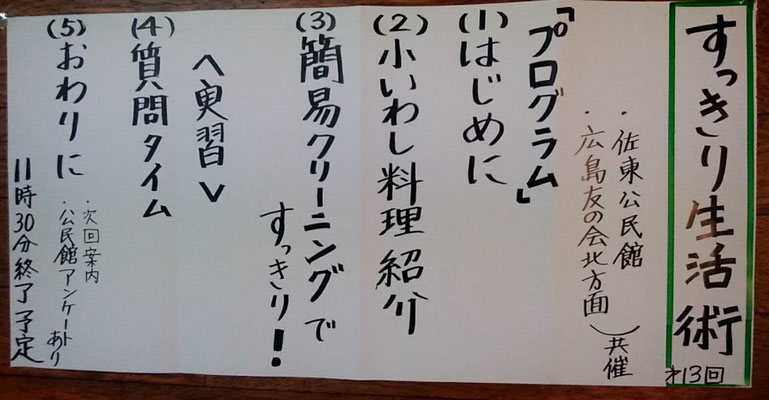 すっきり生活術
才13回
・佐東公民館
・広島友の会北方面
共催
「プログラム」
(1)はじめに
(2)小いわし料理紹介
(3)簡易クリーニングで
すっきり!
<実習>
(4)質問タイム
(5)おわりに
・次回案内
・公民館アンケートあり
11時30分終了予定